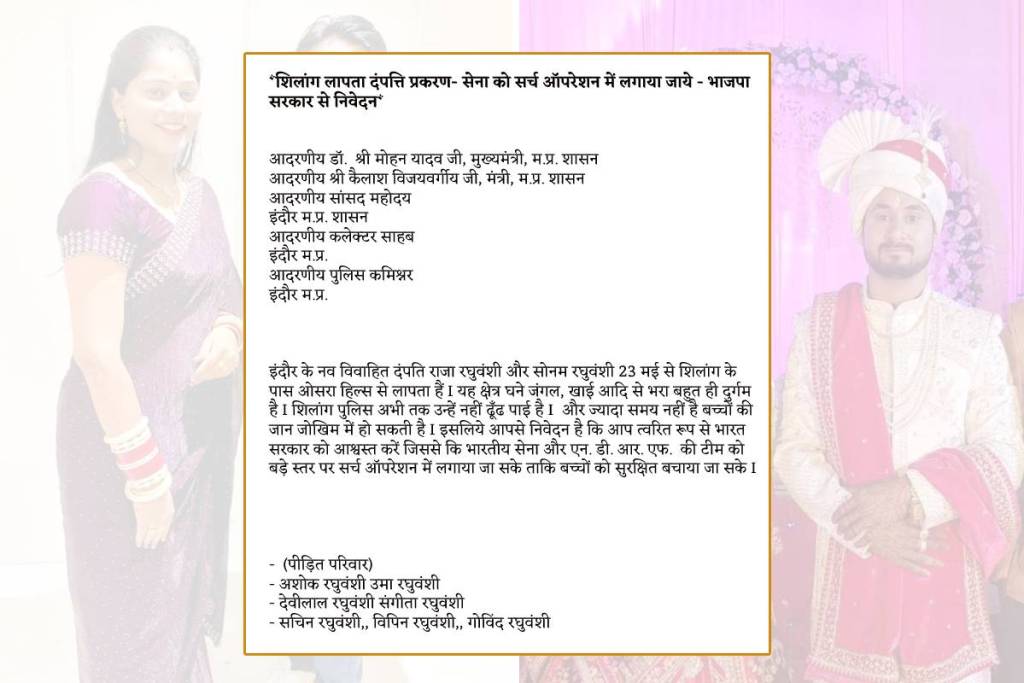 *शिलांग लापता दंपत्ति प्रकरण- सेना को सर्च ऑपरेशन में लगाया जाये - भाजपा
सरकार से निवेदन*
आदरणीय डॉ. श्री मोहन यादव जी, मुख्यमंत्री, म.प्र. शासन
आदरणीय श्री कैलाश विजयवर्गीय जी, मंत्री, म.प्र. शासन
आदरणीय सांसद महोदय
इंदौर म.प्र. शासन
आदरणीय कलेक्टर साहब
इंदौर म.प्र.
आदरणीय पुलिस कमिश्नर
इंदौर म.प्र.
इंदौर के नव विवाहित दंपति राजा रघुवंशी और सोनम रघुवंशी 23 मई से शिलांग के
पास ओसरा हिल्स से लापता हैं I यह क्षेत्र घने जंगल, खाई आदि से भरा बहुत ही दुर्गम
है I शिलांग पुलिस अभी तक उन्हें नहीं ढूँढ पाई है I और ज्यादा समय नहीं है बच्चों की
जान जोखिम में हो सकती है I इसलिये आपसे निवेदन है कि आप त्वरित रूप से भारत
सरकार को आश्वस्त करें जिससे कि भारतीय सेना और एन. डी. आर. एफ. की टीम को
बड़े स्तर पर सर्च ऑपरेशन में लगाया जा सके ताकि बच्चों को सुरक्षित बचाया जा सके I
- (पीड़ित परिवार)
- अशोक रघुवंशी उमा रघुवंशी
- देवीलाल रघुवंशी संगीता रघुवंशी
- सचिन रघुवंशी,, विपिन रघुवंशी,, गोविंद रघुवंशी